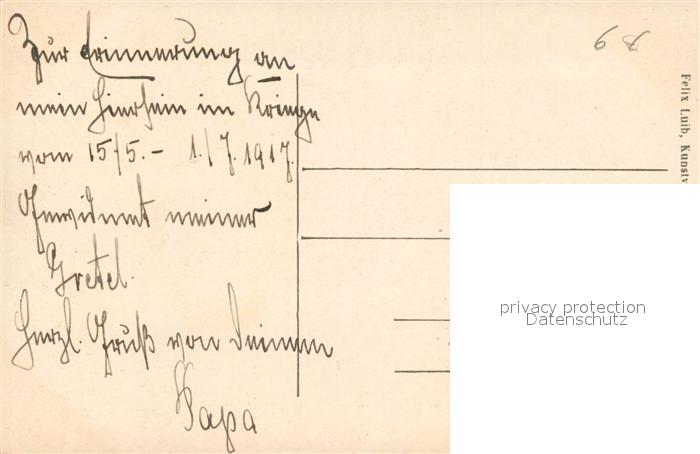 Zur Erinnerung an
mein Hiersein im Kriege
vom 15/5. - 1./7. 1917.
Gewidmet meiner
Gretel.
Herzl. Gruß von Deinem
Papa
68
Felix Luib, Kunstv
privacy protection
Datenschutz